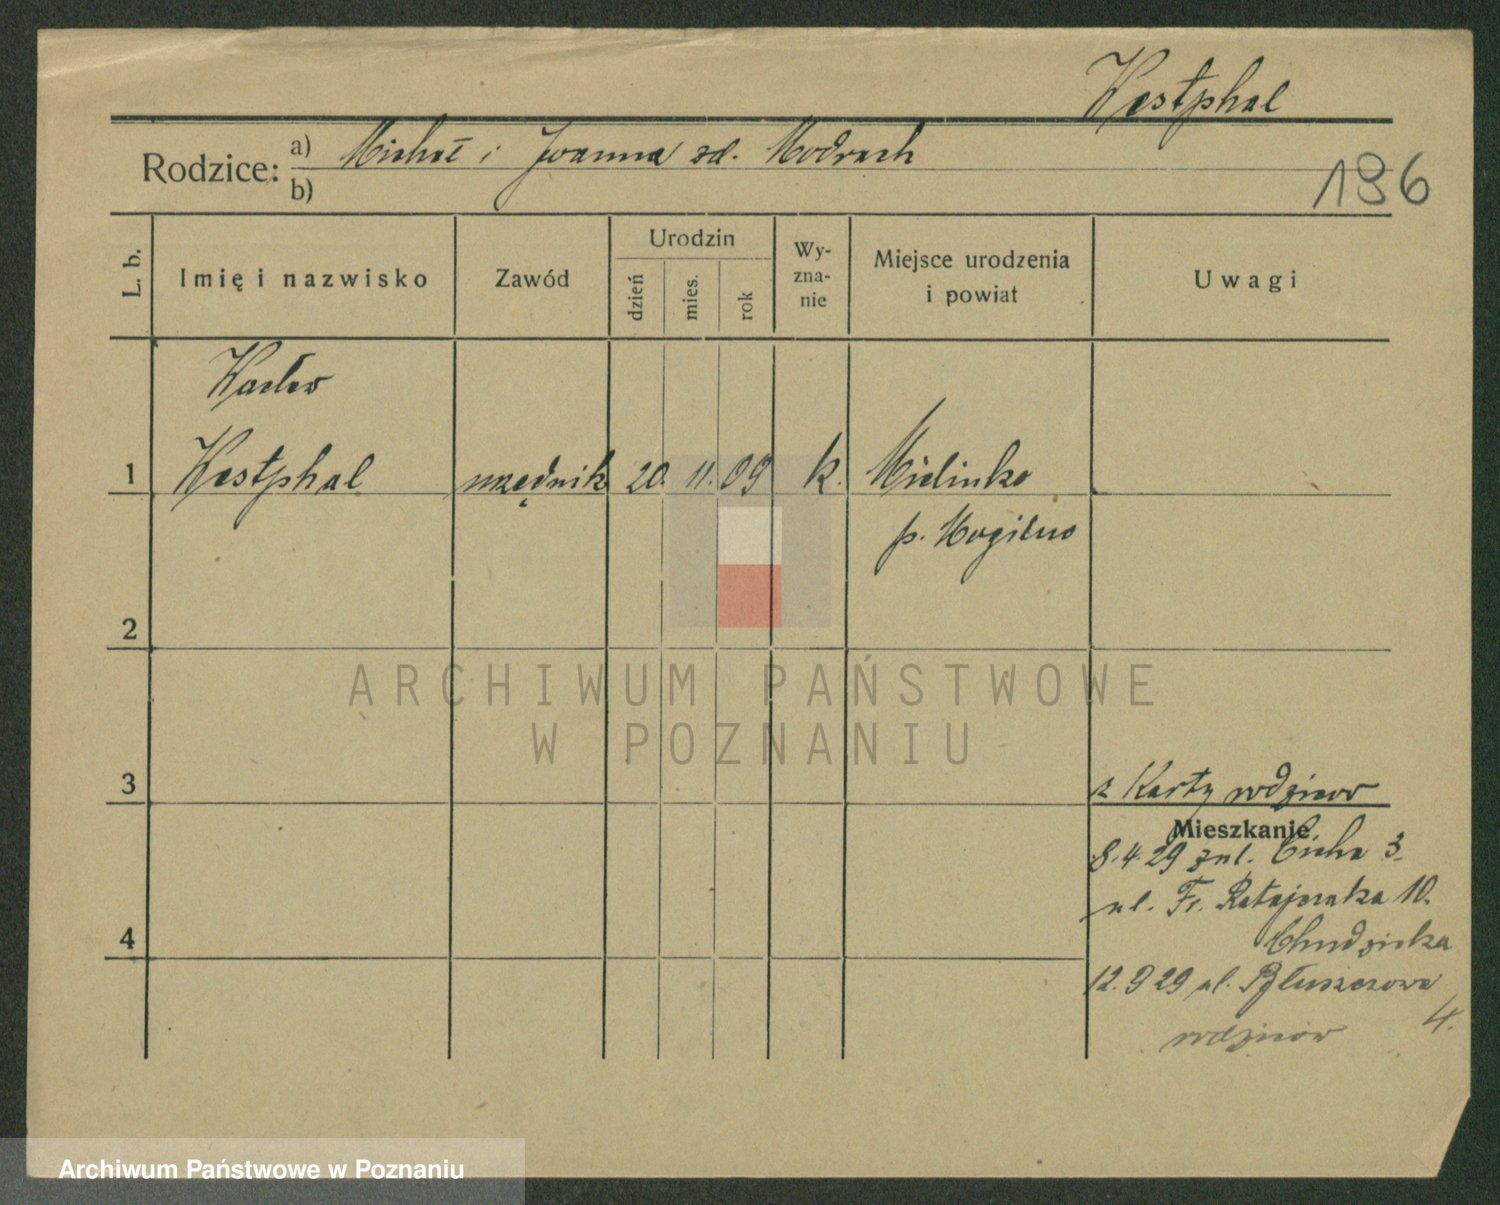 Westphal
Rodzice: a) Michał i Joanna zd. Modrach
b)
196
L. b.
Imię i nazwisko
Zawód
Urodzin
dzień
mies.
rok
Wy-
zna-
nie
Miejsce urodzenia
i powiat
Uwagi
Wacław
1 Westphal urzędnik 20. 11. 09 k. Mielinko
p. Mogilno
2
ARCHIWUM PAŃSTWOWE
W POZNANIU
3
z Karty rodziców
Mieszkanie
8.4.29 Cicha 3.
ul. Fr. Ratajczaka 10.
4
Chudzicka
12.9.29 ul. Bluszczowa
4.
rodziców
Archiwum Państwowe w Poznaniu